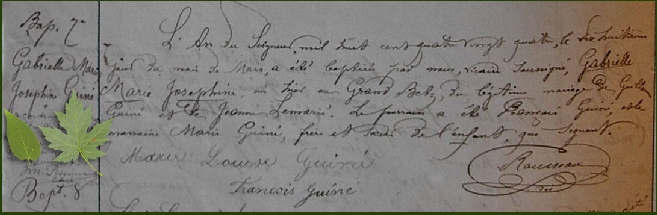 Bap. 7e
Gabrielle Marie
Josephine Guiné
L'An du Seigneur, mil huit cent quatre vingt quatre, le dix huitième
jour du mois de Mars, a été baptisée par nous, vicaire soussigné, Gabrielle
Marie Josephine, au Grand Bois, du légitime mariage de
Guiné et de Jeanne Lemarié. Le parrain a été François Guiné, et la
marraine Marie Guiné, frère et de l'enfant, qui signent.
Marie Louise Guiné
Rousseau
Francois Guiné
Bapt. 8